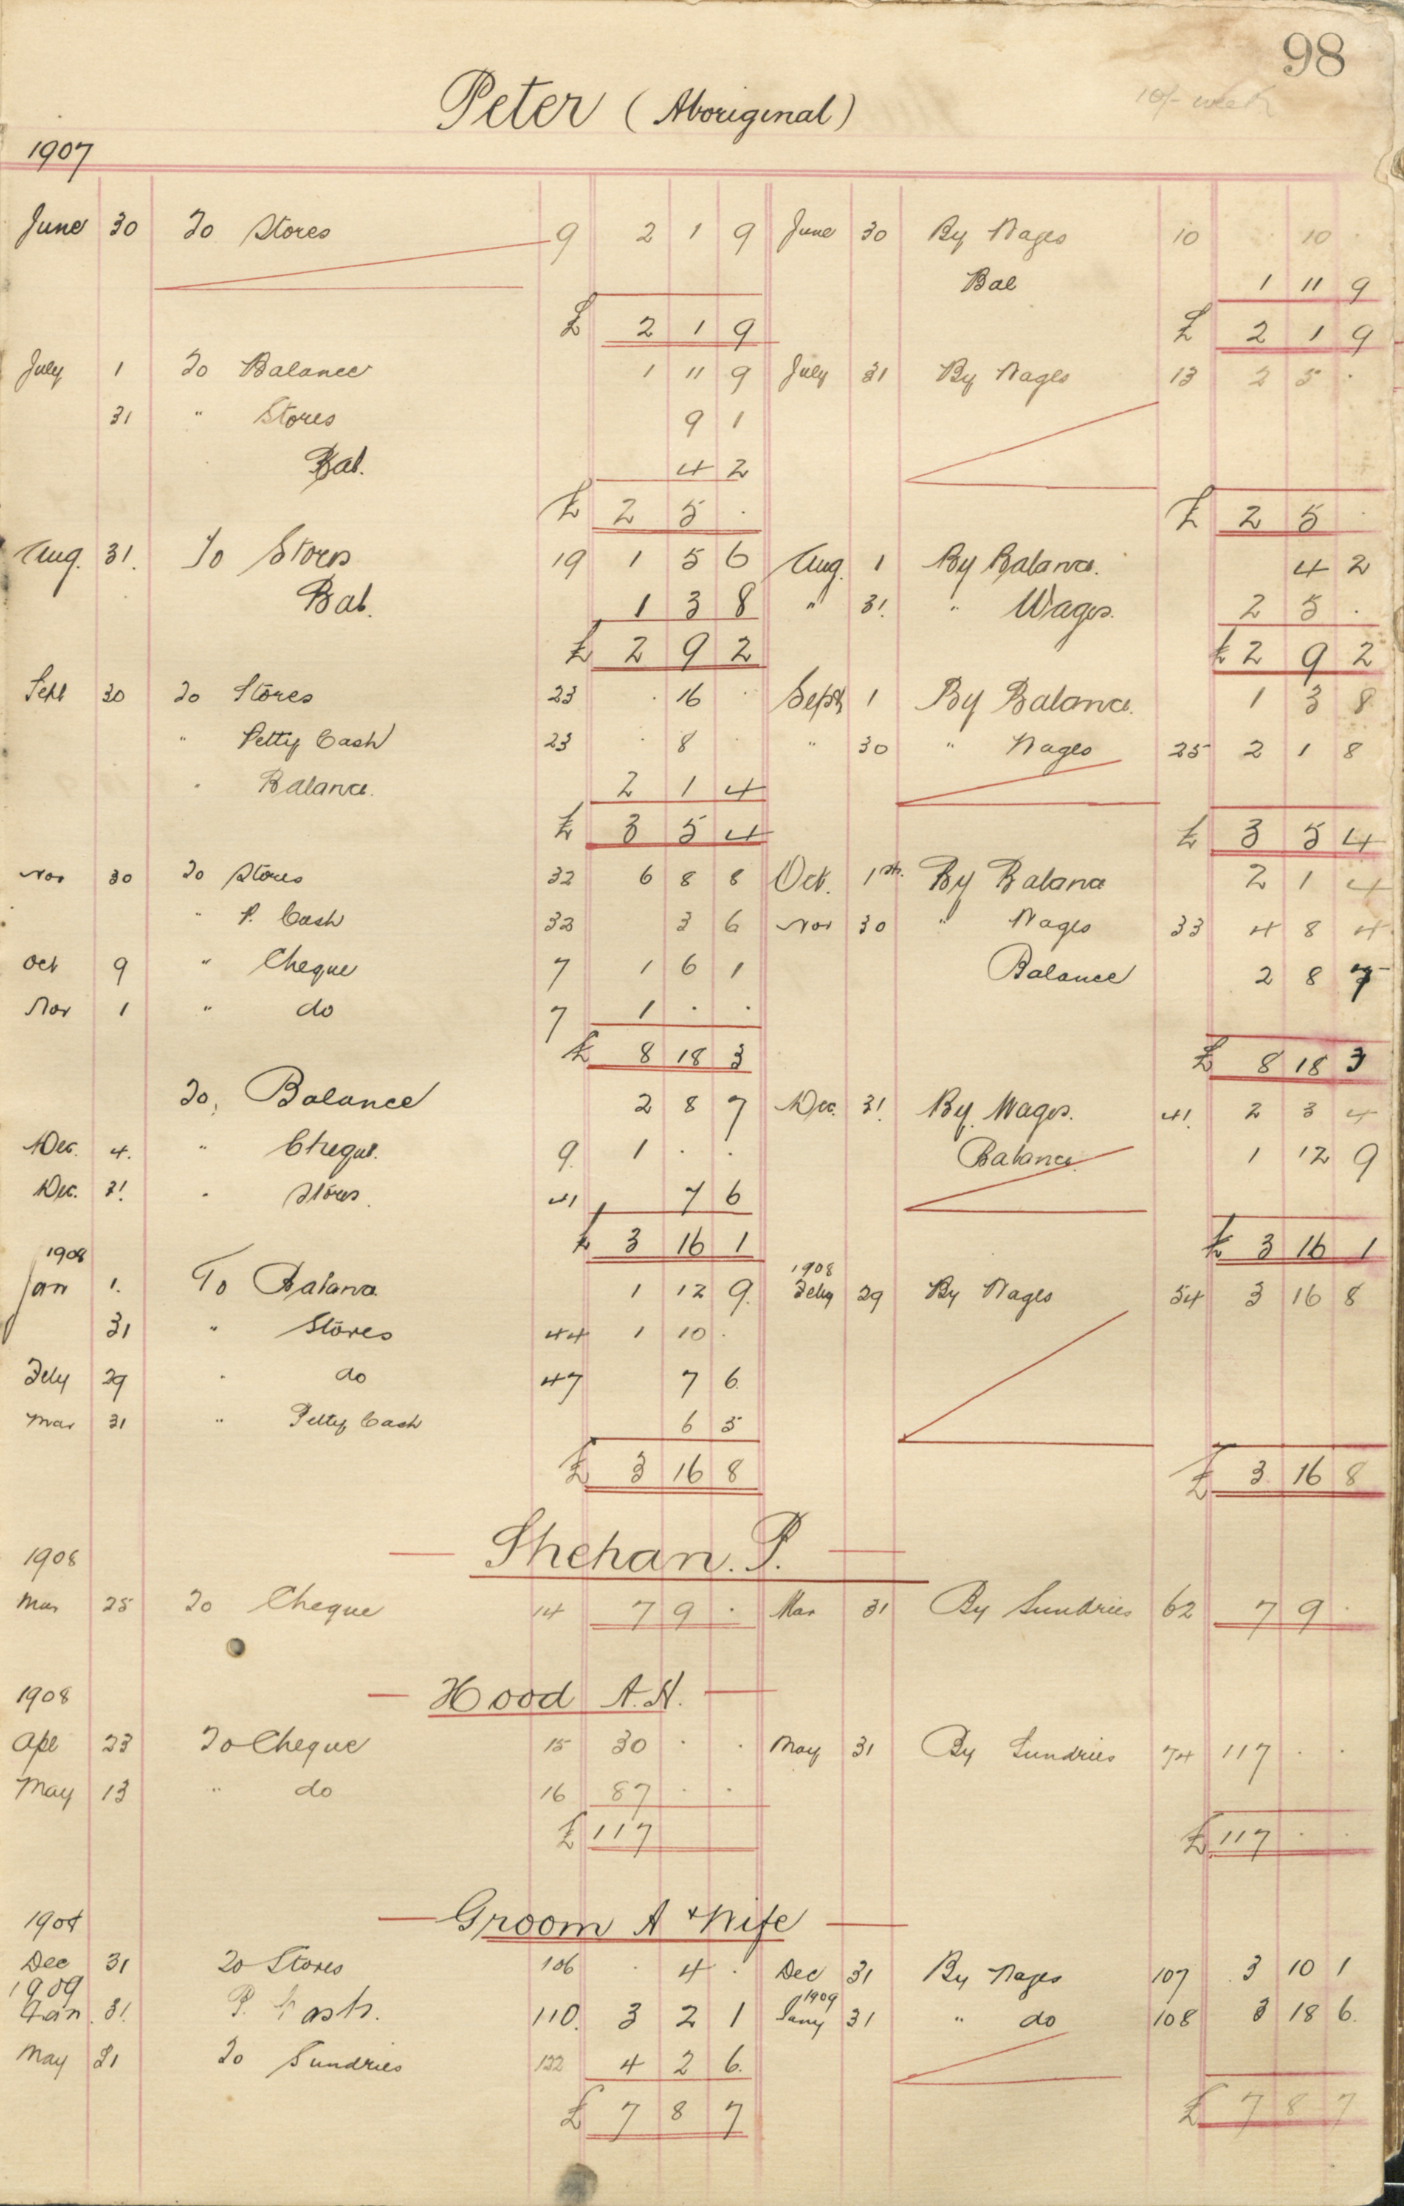 98
10/- week
Peter (Aboriginal)
1907
June 30 To Stores 9 2 1 9 June 30 By Wages 10 · 10 ·
Bal 1 11 9
£ 2 1 9 £ 2 1 9
July 1 To Balance 1 11 9 July 31 By Wages 13 2 5 ·
31 " Stores 9 1
Bal. 4 2
£ 2 5 · £ 2 5 ·
Aug. 31. To Stores 19 1 5 6 Aug. 1 By Balance. 4 2
Bal. 1 3 8 " 31. " Wages. 2 5 ·
£ 2 9 2 £ 2 9 2
Sept 30 To Stores 23 · 16 · Sept 1 By Balance. 1 3 8
" Petty Cash 23 · 8 · " 30 " Wages 25 2 1 8
" Balance. 2 1 4
£ 3 5 4 £ 3 5 4
Nov 30 To Stores 32 6 8 8 Oct. 1st. By Balance 2 1 4
" P. Cash 32 3 6 Nov 30 " Wages 33 4 8 4
Oct 9 " Cheque 7 1 6 1 Balance 2 8 7
Nov 1 " do 7 1 · ·
£ 8 18 3 £ 8 18 3
To, Balance 2 8 7 Dec. 31. By Wages. 41. 2 3 4
Dec. 4. " Cheque. 9. 1 · · Balance. 1 12 9
Dec. 31. " Stores. 41 7 6
£ 3 16 1 £ 3 16 1
1908 1908
Jan 1. To Balance 1 12 9. Feby 29 By Wages 54 3 16 8
31 " Stores 44 1 10 ·
Feby 29 " do 47 7 6
Mar 31 " Petty Cash 6 5
£ 3 16 8 £ 3 16 8
Shehan. P.
1908
Mar 25 To Cheque 14 7 9 · Mar 31 By Sundries 62 7 9 ·
Hood A.H.
1908
Apl 23 To Cheque 15 30 · · May 31 By Sundries 74 117 · ·
May 13 " do 16 87 · ·
£ 117 £ 117 · ·
Groom A & Wife
1908
Dec 31 To Stores 106 · 4 · Dec 31 By Wages 107 3 10 1
1909 1909
Jan. 31. P. Cash. 110. 3 2 1 Jany 31 " do 108 3 18 6.
May 31 To Sundries 122 4 2 6.
£ 7 8 7 £ 7 8 7